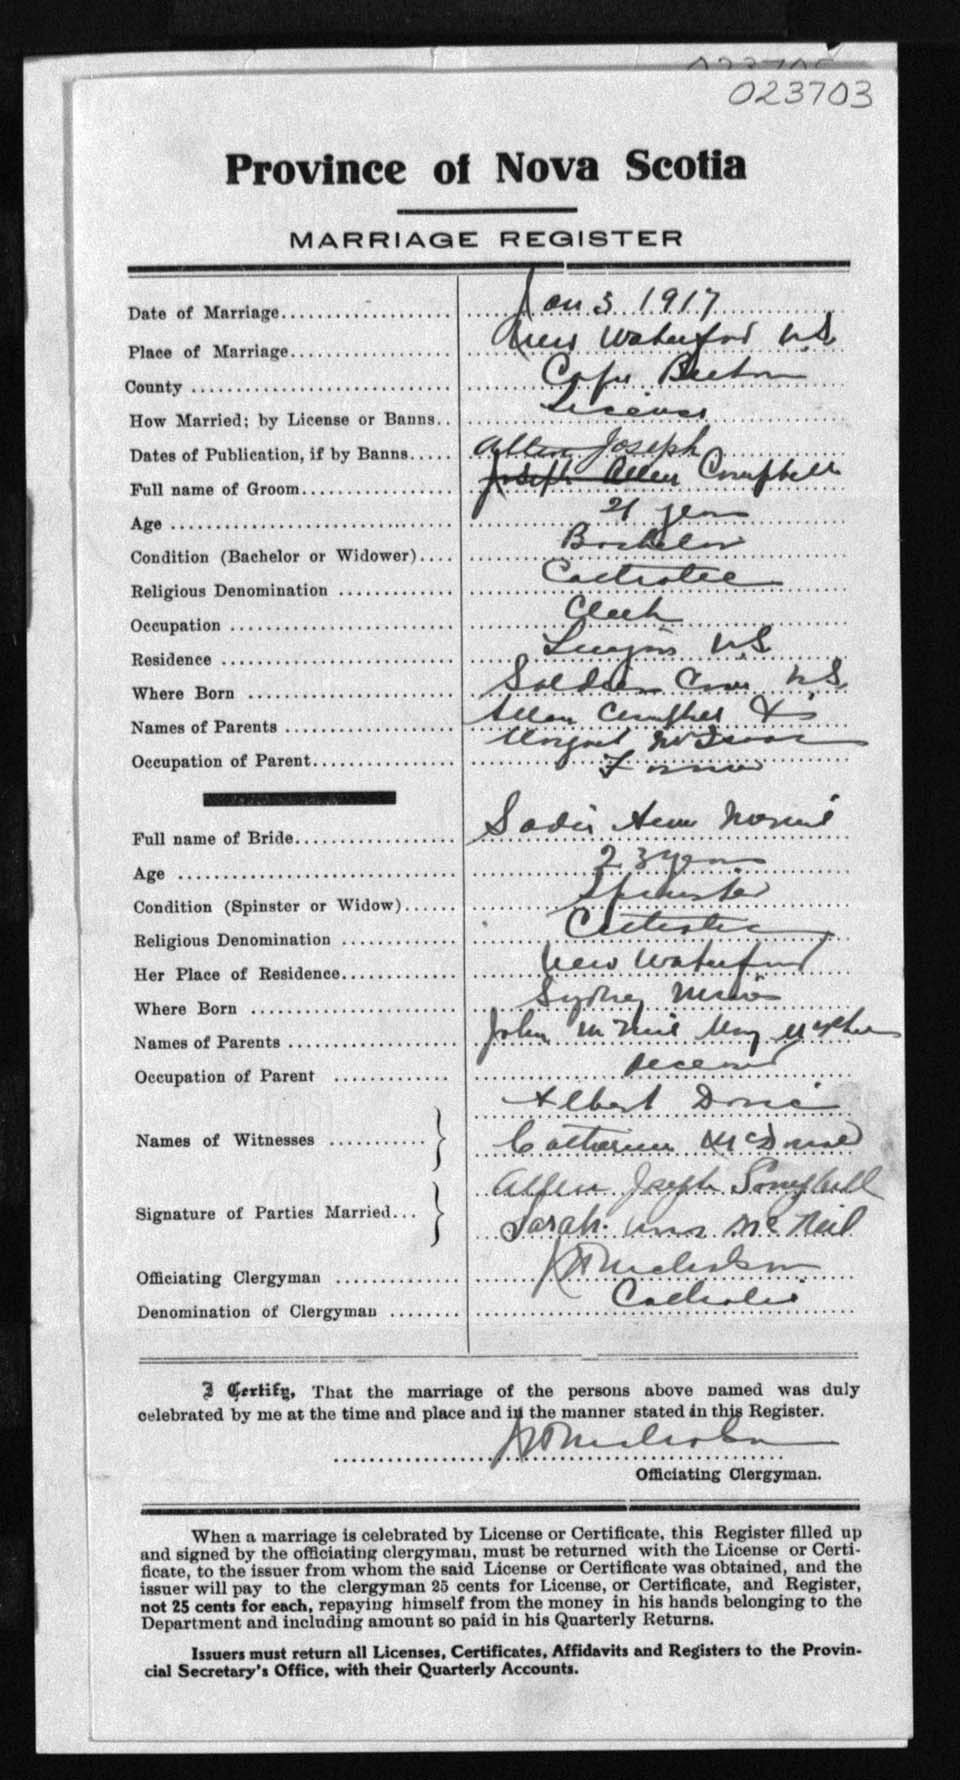 023703
Province of Nova Scotia
MARRIAGE REGISTER
Date of Marriage Jan 3 1917
Place of Marriage New Waterford N.S.
County Cape Breton
How Married; by License or Banns License
Dates of Publication, if by Banns Allen Joseph
Full name of Groom Joseph Allen Campbell
Age 21 years
Condition (Bachelor or Widower) Bachelor
Religious Denomination Catholic
Occupation Clerk
Residence N.S.
Where Born Soldiers Cove N.S.
Names of Parents Allan Campbell &
Margaret McIsaac
Occupation of Parent Farmer
Full name of Bride Sadie Ann McNeil
Age 23 years
Condition (Spinster or Widow) Spinster
Religious Denomination Catholic
Her Place of Residence New Waterford
Where Born Sydney Mines
Names of Parents John McNeil Mary
Occupation of Parent Deceased
Albert
Names of Witnesses
Catherine McDonald
Allen Joseph Campbell
Signature of Parties Married
Sarah Ann McNeil
Officiating Clergyman Nicholson
Denomination of Clergyman Catholic
I Certify, That the marriage of the persons above named was duly
celebrated by me at the time and place and in the manner stated in this Register.
Nicholson
Officiating Clergyman.
When a marriage is celebrated by License or Certificate, this Register filled up
and signed by the officiating clergyman, must be returned with the License or Certi-
ficate, to the issuer from whom the said License or Certificate was obtained, and the
issuer will pay to the clergyman 25 cents for License, or Certificate, and Register,
not 25 cents for each, repaying himself from the money in his hands belonging to the
Department and including amount so paid in his Quarterly Returns.
Issuers must return all Licenses, Certificates, Affidavits and Registers to the Provin-
cial Secretary's Office, with their Quarterly Accounts.